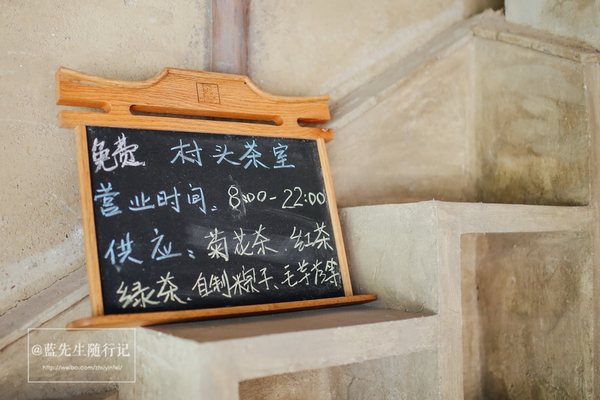 免费 村头茶室
营业时间、8:00-22:00
供应:菊花茶、红茶
绿茶、自制粽子、毛芋艿等
@蓝先生随行记